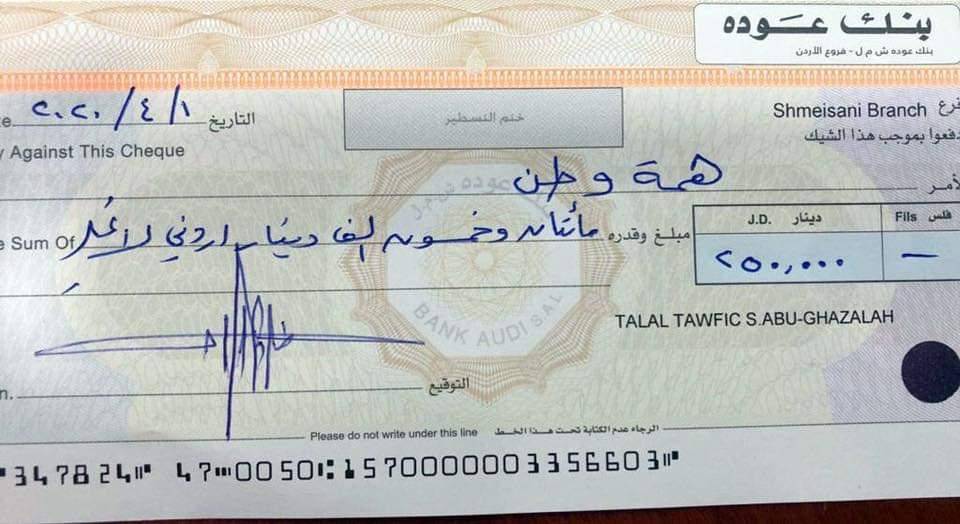 بنك عوده
بنك عوده ش م ل - فروع الأردن
التاريخ ٢٠٢٠/٤/١
ختم التسطير
Shmeisani Branch فرع
دفعوا بموجب هذا الشيك
y Against This Cheque
لأمر همة وطن
e Sum Of مبلغ وقدره مائتان وخمسون الف دينار اردني لا غير
J.D. دينار Fils فلس
٢٥٠,٠٠٠ —
بنك عوده ش.م.ل.
BANK AUDI S.A.L
TALAL TAWFIC S.ABU-GHAZALAH
التوقيع
Please do not write under this line الرجاء عدم الكتابة تحت هذا الخط
⑈347824⑈ 47⑉0050⑆1570000003356603⑈